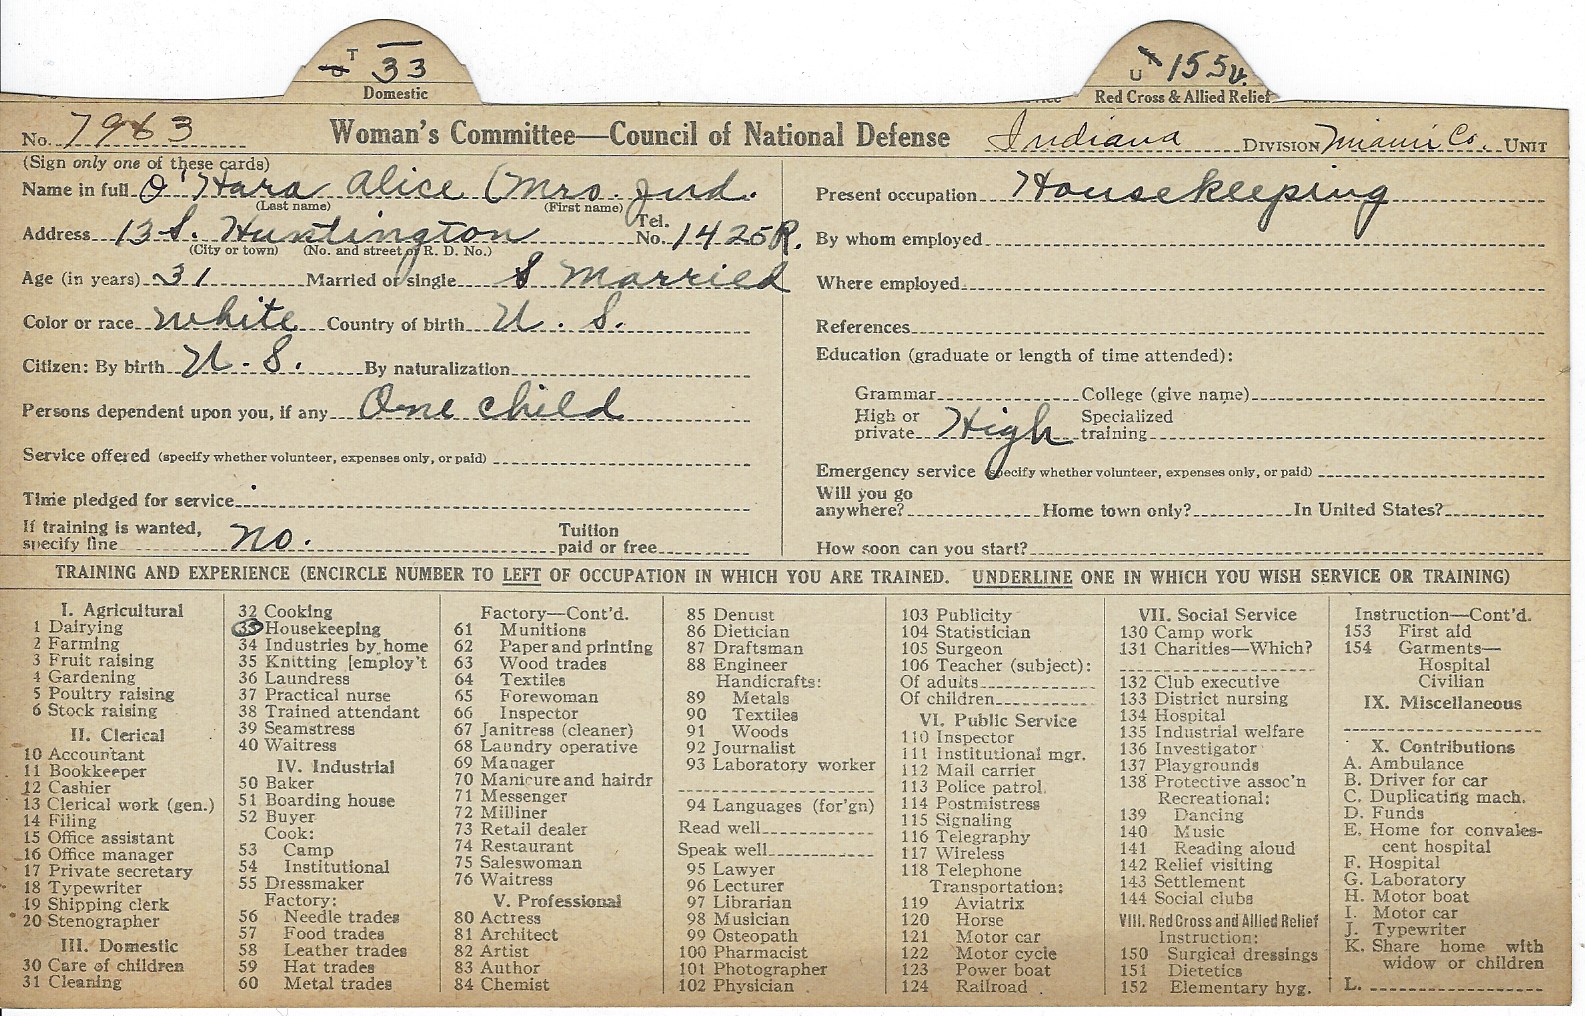 T 33
Domestic
U 155
Red Cross & Allied Relief
No. 7963 Woman's Committee—Council of National Defense Indiana DIVISION Miami Co. UNIT
(Sign only one of these cards)
Name in full O'Hara Alice (Mrs. Jud.
(Last name) (First name)
Address 13 S. Huntington Tel. No. 1425R.
(City or town) (No. and street or R. D. No.)
Age (in years) 31 Married or single S Married
Color or race White Country of birth U. S.
Citizen: By birth U. S. By naturalization
Persons dependent upon you, if any One child
Service offered (specify whether volunteer, expenses only, or paid)
Time pledged for service
If training is wanted, specify line no. Tuition paid or free
Present occupation Housekeeping
By whom employed
Where employed
References
Education (graduate or length of time attended):
Grammar College (give name)
High or private High Specialized training
Emergency service (specify whether volunteer, expenses only, or paid)
Will you go anywhere? Home town only? In United States?
How soon can you start?
TRAINING AND EXPERIENCE (ENCIRCLE NUMBER TO LEFT OF OCCUPATION IN WHICH YOU ARE TRAINED. UNDERLINE ONE IN WHICH YOU WISH SERVICE OR TRAINING)
I. Agricultural
1 Dairying
2 Farming
3 Fruit raising
4 Gardening
5 Poultry raising
6 Stock raising
II. Clerical
10 Accountant
11 Bookkeeper
12 Cashier
13 Clerical work (gen.)
14 Filing
15 Office assistant
16 Office manager
17 Private secretary
18 Typewriter
19 Shipping clerk
20 Stenographer
III. Domestic
30 Care of children
31 Cleaning
32 Cooking
33 Housekeeping
34 Industries by home
35 Knitting [employ't
36 Laundress
37 Practical nurse
38 Trained attendant
39 Seamstress
40 Waitress
IV. Industrial
50 Baker
51 Boarding house
52 Buyer
Cook:
53 Camp
54 Institutional
55 Dressmaker
Factory:
56 Needle trades
57 Food trades
58 Leather trades
59 Hat trades
60 Metal trades
Factory—Cont'd.
61 Munitions
62 Paper and printing
63 Wood trades
64 Textiles
65 Forewoman
66 Inspector
67 Janitress (cleaner)
68 Laundry operative
69 Manager
70 Manicure and hairdr
71 Messenger
72 Milliner
73 Retail dealer
74 Restaurant
75 Saleswoman
76 Waitress
V. Professional
80 Actress
81 Architect
82 Artist
83 Author
84 Chemist
85 Dentist
86 Dietician
87 Draftsman
88 Engineer
Handicrafts:
89 Metals
90 Textiles
91 Woods
92 Journalist
93 Laboratory worker
94 Languages (for'gn)
Read well
Speak well
95 Lawyer
96 Lecturer
97 Librarian
98 Musician
99 Osteopath
100 Pharmacist
101 Photographer
102 Physician
103 Publicity
104 Statistician
105 Surgeon
106 Teacher (subject):
Of adults
Of children
VI. Public Service
110 Inspector
111 Institutional mgr.
112 Mail carrier
113 Police patrol
114 Postmistress
115 Signaling
116 Telegraphy
117 Wireless
118 Telephone
Transportation:
119 Aviatrix
120 Horse
121 Motor car
122 Motor cycle
123 Power boat
124 Railroad
VII. Social Service
130 Camp work
131 Charities—Which?
132 Club executive
133 District nursing
134 Hospital
135 Industrial welfare
136 Investigator
137 Playgrounds
138 Protective assoc'n
Recreational:
139 Dancing
140 Music
141 Reading aloud
142 Relief visiting
143 Settlement
144 Social clubs
VIII. Red Cross and Allied Relief
Instruction:
150 Surgical dressings
151 Dietetics
152 Elementary hyg.
Instruction—Cont'd.
153 First aid
154 Garments—
Hospital
Civilian
IX. Miscellaneous
X. Contributions
A. Ambulance
B. Driver for car
C. Duplicating mach.
D. Funds
E. Home for convales-
cent hospital
F. Hospital
G. Laboratory
H. Motor boat
I. Motor car
J. Typewriter
K. Share home with
widow or children
L.